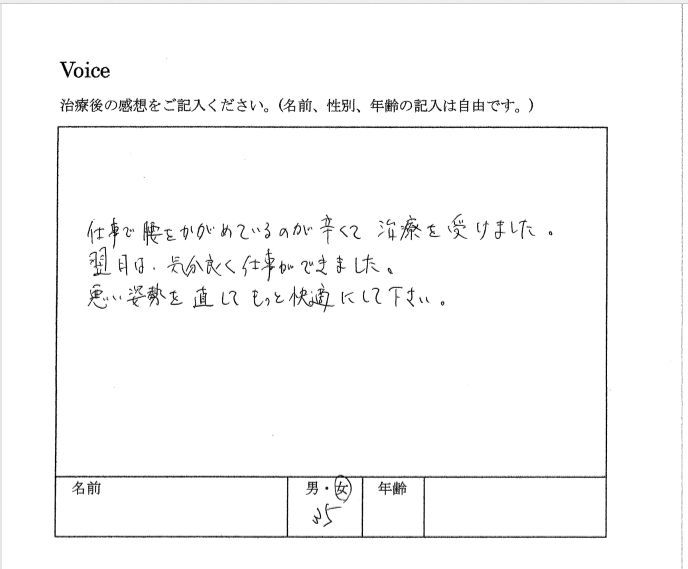 Voice
治療後の感想をご記入ください。(名前、性別、年齢の記入は自由です。)
仕事で腰をかがめているのが辛くて 治療を受けました。
翌日は、気分良く仕事ができました。
悪い姿勢を直してもっと快適にして下さい。
名前
男・女
年齢
35